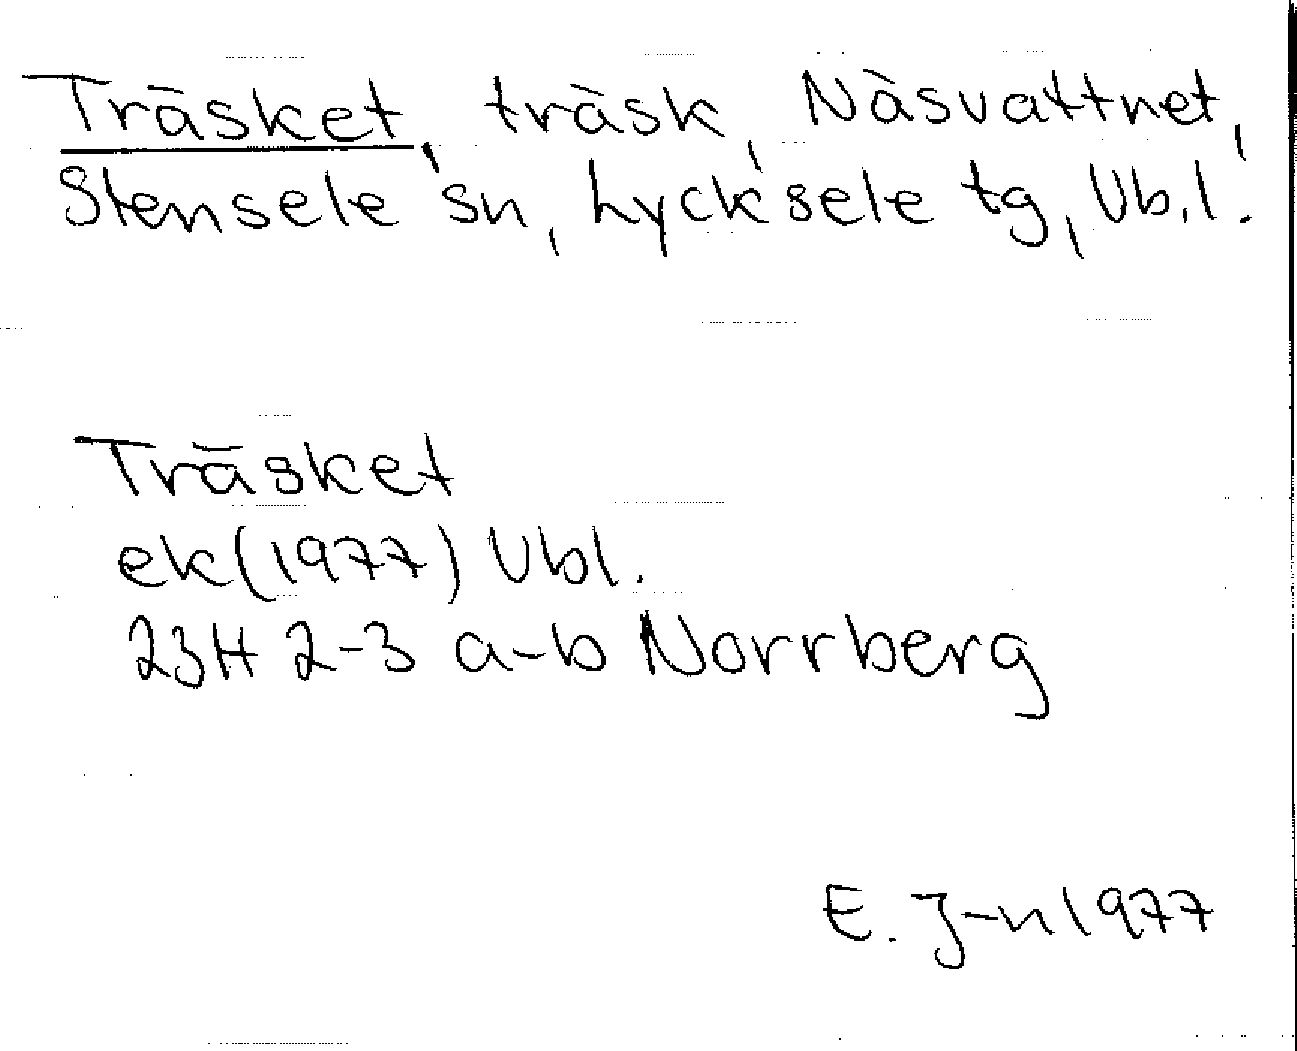 Träsket, träsk, Näsvattnet,
Stensele sn, Lycksele tg, Vb.l.
Träsket
ek(1977) Vbl.
23H 2-3 a-b Norrberg
E. J-n 1977